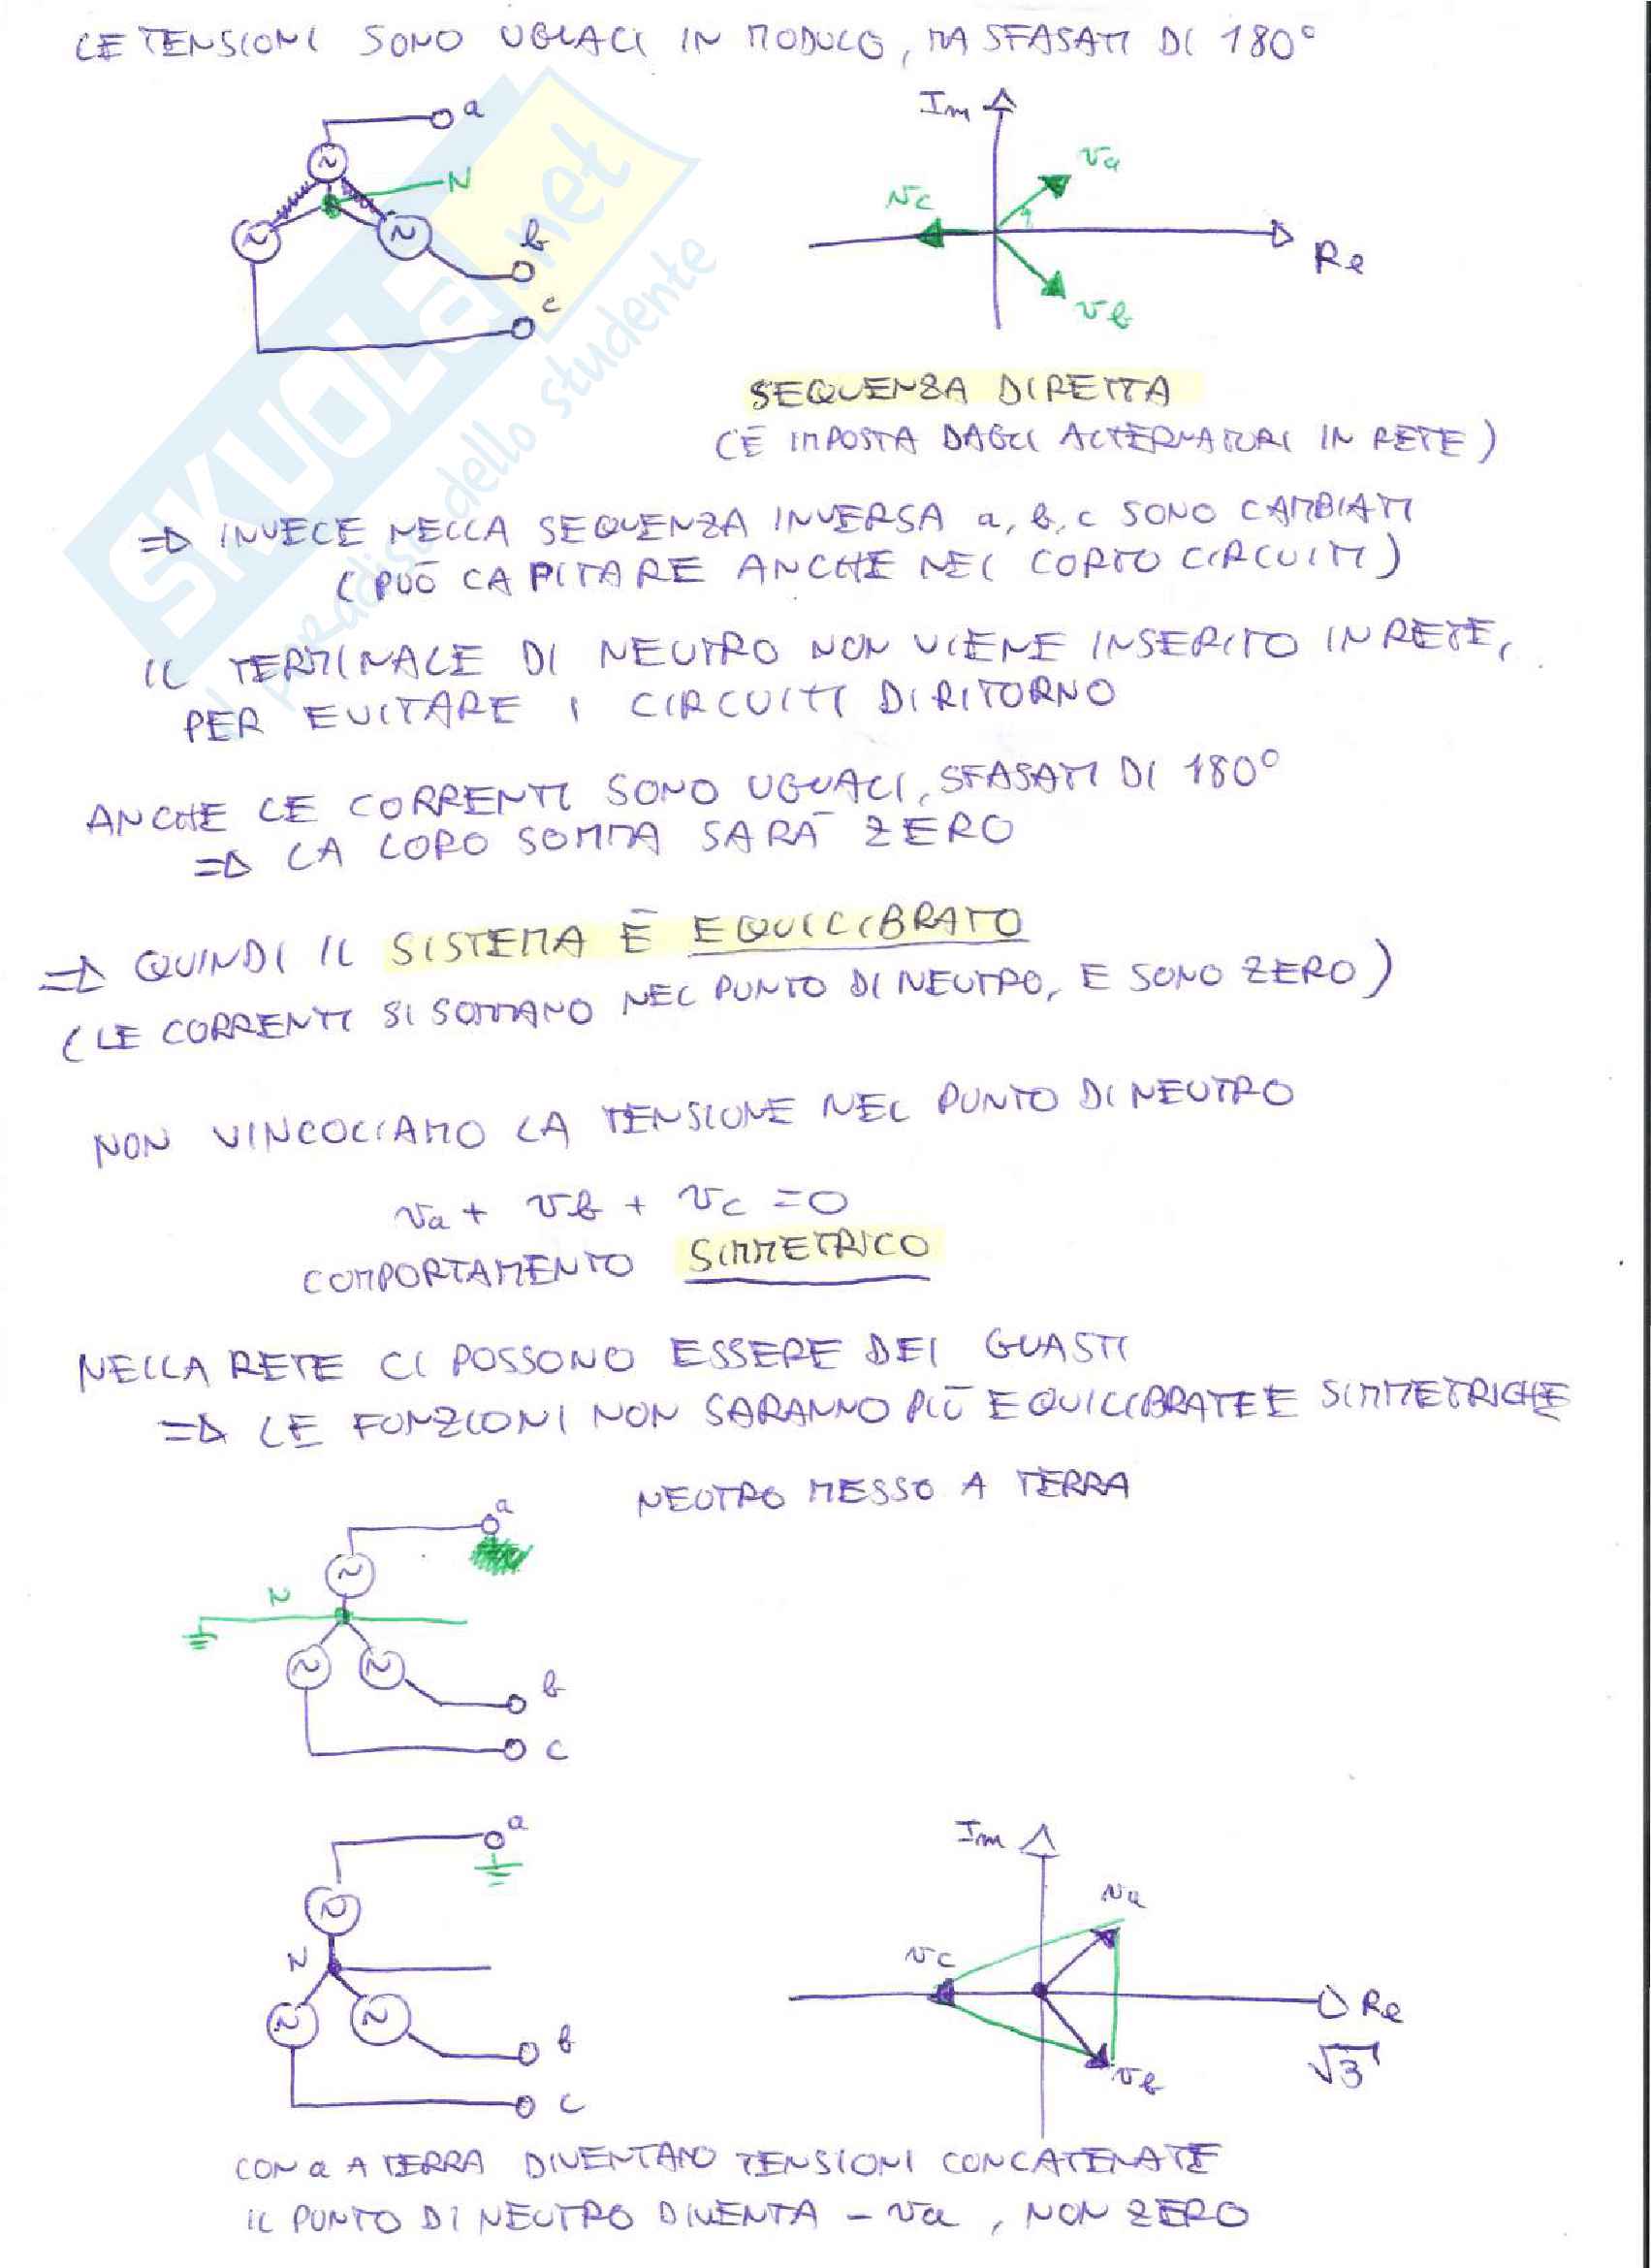 LE TENSIONI SONO UGUALI IN MODULO, MA SFASATI DI 180°
a
N
b
c
Im
va
vc
Re
vb
SKUOLA.net
il paradiso dello studente
SEQUENZA DIRETTA
(È IMPOSTA DAGLI ALTERNATORI IN RETE)
=> INVECE NELLA SEQUENZA INVERSA a, b, c SONO CAMBIATI
(PUÒ CAPITARE ANCHE NEI CORTO CIRCUITI)
IL TERMINALE DI NEUTRO NON VIENE INSERITO IN RETE,
PER EVITARE I CIRCUITI DI RITORNO
ANCHE LE CORRENTI SONO UGUALI, SFASATI DI 180°
=> LA LORO SOMMA SARÀ ZERO
=> QUINDI IL SISTEMA È EQUILIBRATO
(LE CORRENTI SI SOMMANO NEL PUNTO DI NEUTRO, E SONO ZERO)
NON VINCOLIAMO LA TENSIONE NEL PUNTO DI NEUTRO
va + vb + vc = 0
COMPORTAMENTO SIMMETRICO
NELLA RETE CI POSSONO ESSERE DEI GUASTI
=> LE FUNZIONI NON SARANNO PIÙ EQUILIBRATE E SIMMETRICHE
NEUTRO MESSO A TERRA
a
N
b
c
a
N
b
c
Im
va
vc
Re
√3
vb
CON a A TERRA DIVENTANO TENSIONI CONCATENATE
IL PUNTO DI NEUTRO DIVENTA - va, NON ZERO